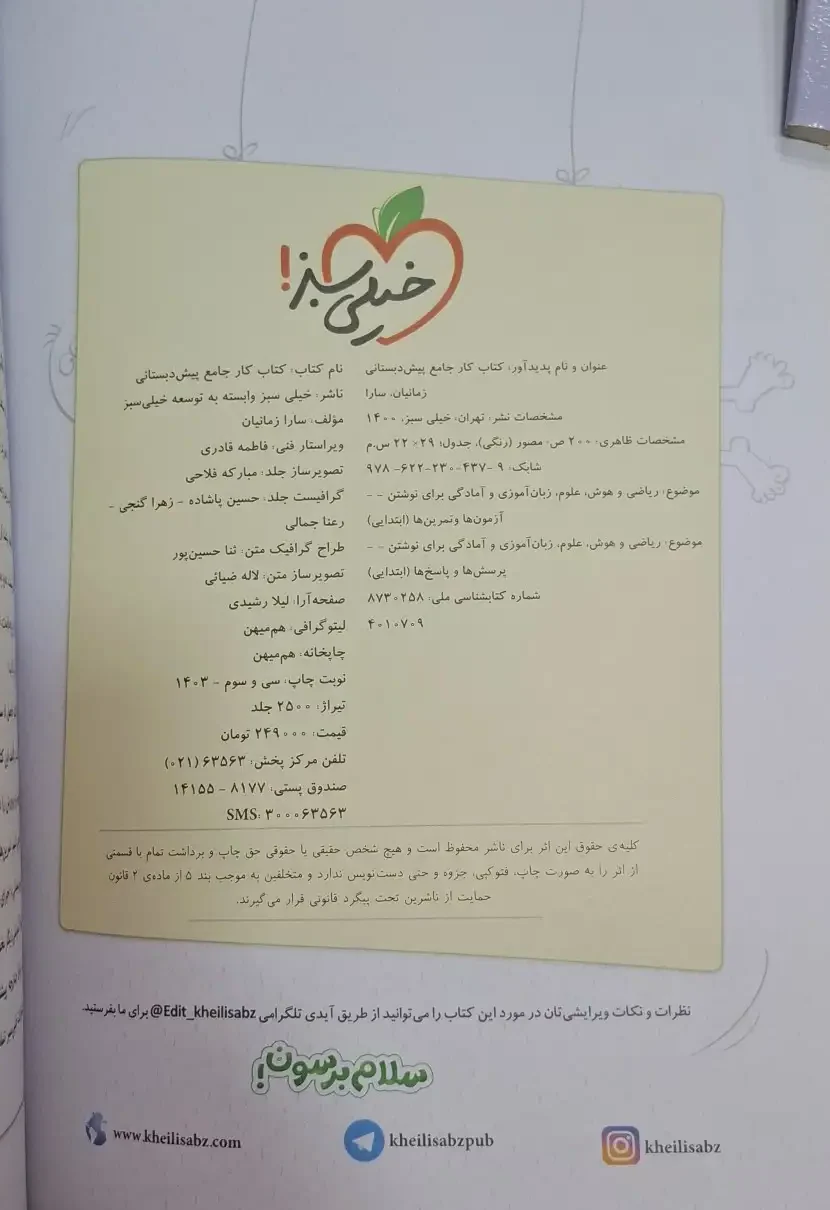 خیلی سبز!
عنوان و نام پدیدآور: کتاب کار جامع پیش‌دبستانی
زمانیان، سارا
مشخصات نشر: تهران: خیلی سبز، ۱۴۰۰
مشخصات ظاهری: ۲۰۰ ص: مصور (رنگی)، جدول؛ ۲۹×۲۲ س.م
شابک: ۹-۴۳۷-۲۳۰-۶۲۲-۹۷۸
موضوع: ریاضی و هوش، علوم، زبان‌آموزی و آمادگی برای نوشتن --
آزمون‌ها وتمرین‌ها (ابتدایی)
موضوع: ریاضی و هوش، علوم، زبان‌آموزی و آمادگی برای نوشتن --
پرسش‌ها و پاسخ‌ها (ابتدایی)
شماره کتابشناسی ملی: ۸۷۳۰۲۵۸
۴۰۱۰۷۰۹
نام کتاب: کتاب کار جامع پیش‌دبستانی
ناشر: خیلی سبز وابسته به توسعه خیلی‌سبز
مؤلف: سارا زمانیان
ویراستار فنی: فاطمه قادری
تصویرساز جلد: مبارکه فلاحی
گرافیست جلد: حسین پاشاده - زهرا گنجی -
رعنا جمالی
طراح گرافیک متن: ثنا حسین‌پور
تصویرساز متن: لاله ضیائی
صفحه‌آرا: لیلا رشیدی
لیتوگرافی: هم‌میهن
چاپخانه: هم‌میهن
نوبت چاپ: سی و سوم - ۱۴۰۳
تیراژ: ۲۵۰۰ جلد
قیمت: ۲۴۹۰۰۰ تومان
تلفن مرکز پخش: ۶۳۵۶۳ (۰۲۱)
صندوق پستی: ۸۱۷۷ - ۱۴۱۵۵
SMS: ۳۰۰۰۶۳۵۶۳
کلیه‌ی حقوق این اثر برای ناشر محفوظ است و هیچ شخص حقیقی یا حقوقی حق چاپ و برداشت تمام یا قسمتی
از اثر را به صورت چاپ، فتوکپی، جزوه و حتی دست‌نویس ندارد و متخلفین به موجب بند ۵ از ماده‌ی ۲ قانون
حمایت از ناشرین تحت پیگرد قانونی قرار می‌گیرند.
نظرات و نکات ویرایشی‌تان در مورد این کتاب را می‌توانید از طریق آیدی تلگرامی @Edit_kheilisabz برای ما بفرستید.
سلام برسون!
www.kheilisabz.com
kheilisabzpub
kheilisabz